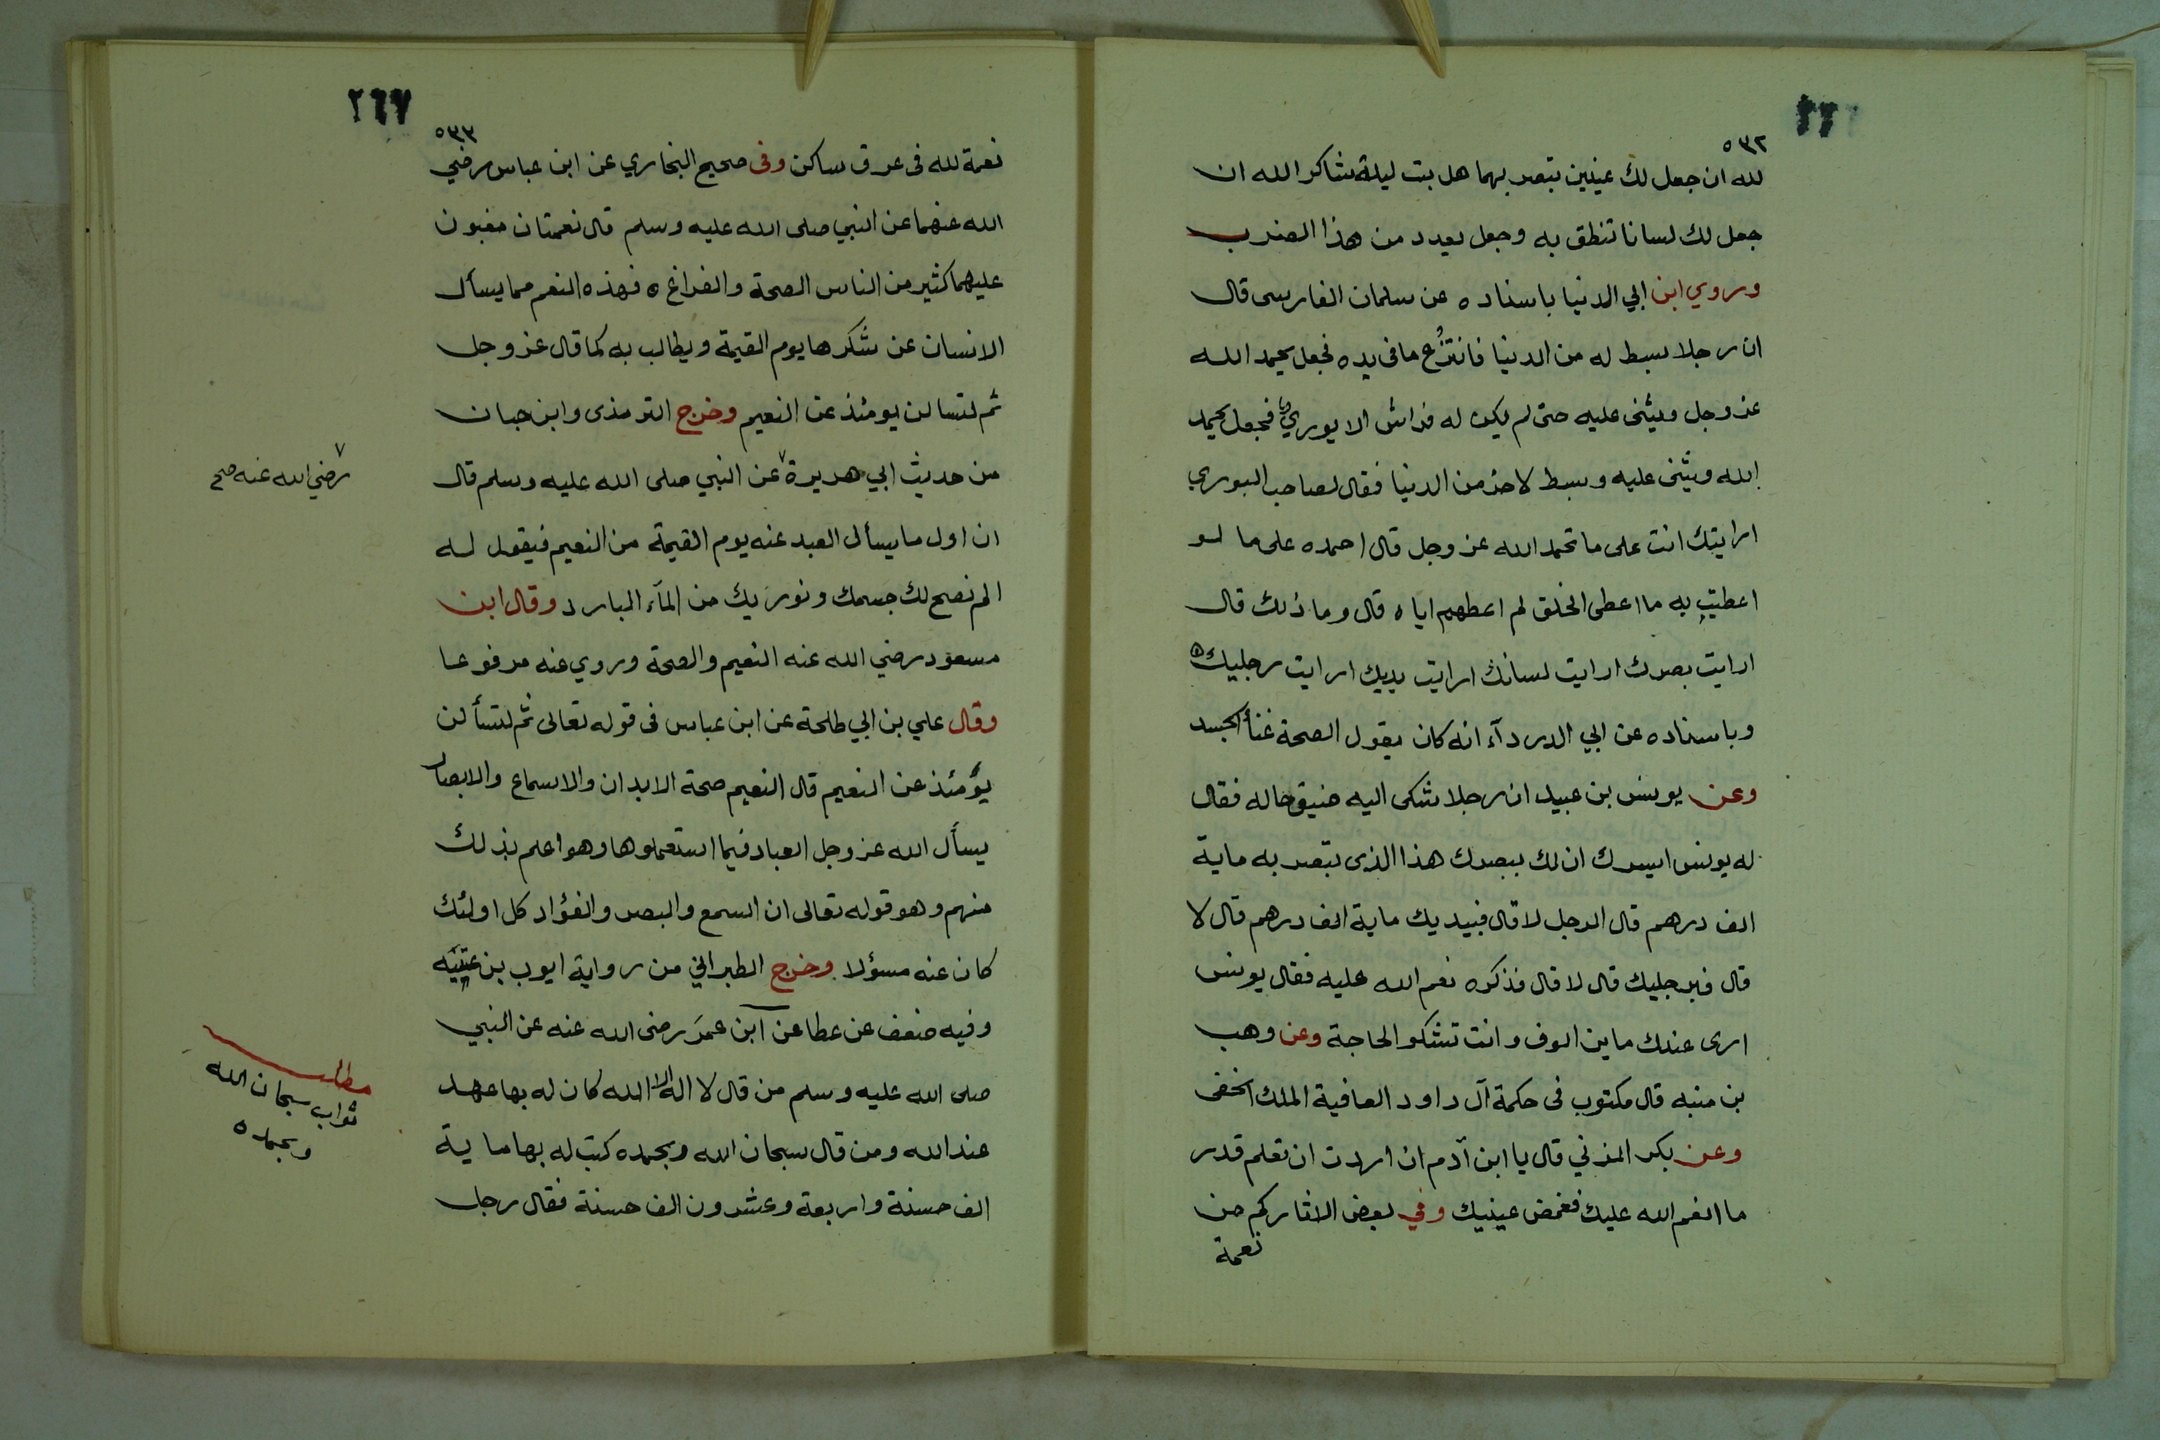 ٥٣٢
لله ان جعل لك عينين تبصر بهما هل بت ليلة شاكر الله ان
جعل لك لسانا تنطق به وجعل يعدد من هذا الضرب
وروي ابن ابي الدنيا باسناده عن سلمان الفارسي قال
ان رجلا بسط له من الدنيا فانتزع ما في يده فجعل يحمد الله
عز وجل ويثنى عليه حتى لم يكن له فراش الا بوري فجعل يحمد
الله ويثنى عليه وبسط لاخر من الدنيا فقال لصاحب البوري
ارايتك انت على ما تحمد الله عز وجل قال احمده على ما لو
اعطيت به ما اعطى الخلق لم اعطهم اياه قال وما ذلك قال
ارايت بصرك ارايت لسانك ارايت يديك ارايت رجليك ه
وباسناده عن ابي الدردآء انه كان يقول الصحة غنأ الجسد
وعن يونس بن عبيد ان رجلا شكى اليه ضيق حاله فقال
له يونس ايسرك ان لك ببصرك هذا الذى تبصر به ماية
الف درهم قال الرجل لا قال فبيديك ماية الف درهم قال لا
قال فبرجليك قال لا قال فذكره نعم الله عليه فقال يونس
ارى عندك ماين الوف وانت تشكو الحاجة وعن وهب
بن منبه قال مكتوب في حكمة آل داود العافية الملك الخفى
وعن بكر المزني قال يا ابن آدم ان اردت ان تعلم قدر
ما انعم الله عليك فغمض عينيك وفي بعض الاثار كم من
نعمة
٢٦٧
٥٣٣
نعمة لله في عرق ساكن وفى صحيح البخاري عن ابن عباس رضي
الله عنهما عن النبي صلى الله عليه وسلم قال نعمتان مغبون
عليهما كثير من الناس الصحة والفراغ ه فهذه النعم مما يسأل
الانسان عن شكرها يوم القيمة ويطالب به كما قال عز وجل
ثم لتسالن يومئذ عن النعيم وخرج الترمذى وابن حبان
من حديث ابي هريرة ٧ عن النبي صلى الله عليه وسلم قال
٧ رضي الله عنه صح
ان اول ما يسأل العبد عنه يوم القيمة من النعيم فيقول له
الم نصح لك جسمك ونورَيك من المآء البارد وقال ابن
مسعود رضي الله عنه النعيم والصحة وروي عنه مرفوعا
وقال علي بن ابي طلحة عن ابن عباس في قوله تعالى ثم لتسألن
يؤمئذ عن النعيم قال النعيم صحة الابدان والاسماع والابصار
يسأل الله عز وجل العباد فيما استعملوها وهو اعلم بذلك
منهم وهو قوله تعالى ان السمع والبصر والفؤاد كل اولئك
كان عنه مسؤلا وخرج الطبراني من رواية ايوب بن عتيبه
وفيه ضعف عن عطا عن ابن عمر رضى الله عنه عن النبي
صلى الله عليه وسلم من قال لا اله الا الله كان له بها عهد
عند الله ومن قال سبحان الله وبحمده كتب له بها ماية
الف حسنة واربعة وعشرون الف حسنة فقال رجل
مطلب
ثواب سبحان الله
وبحمده